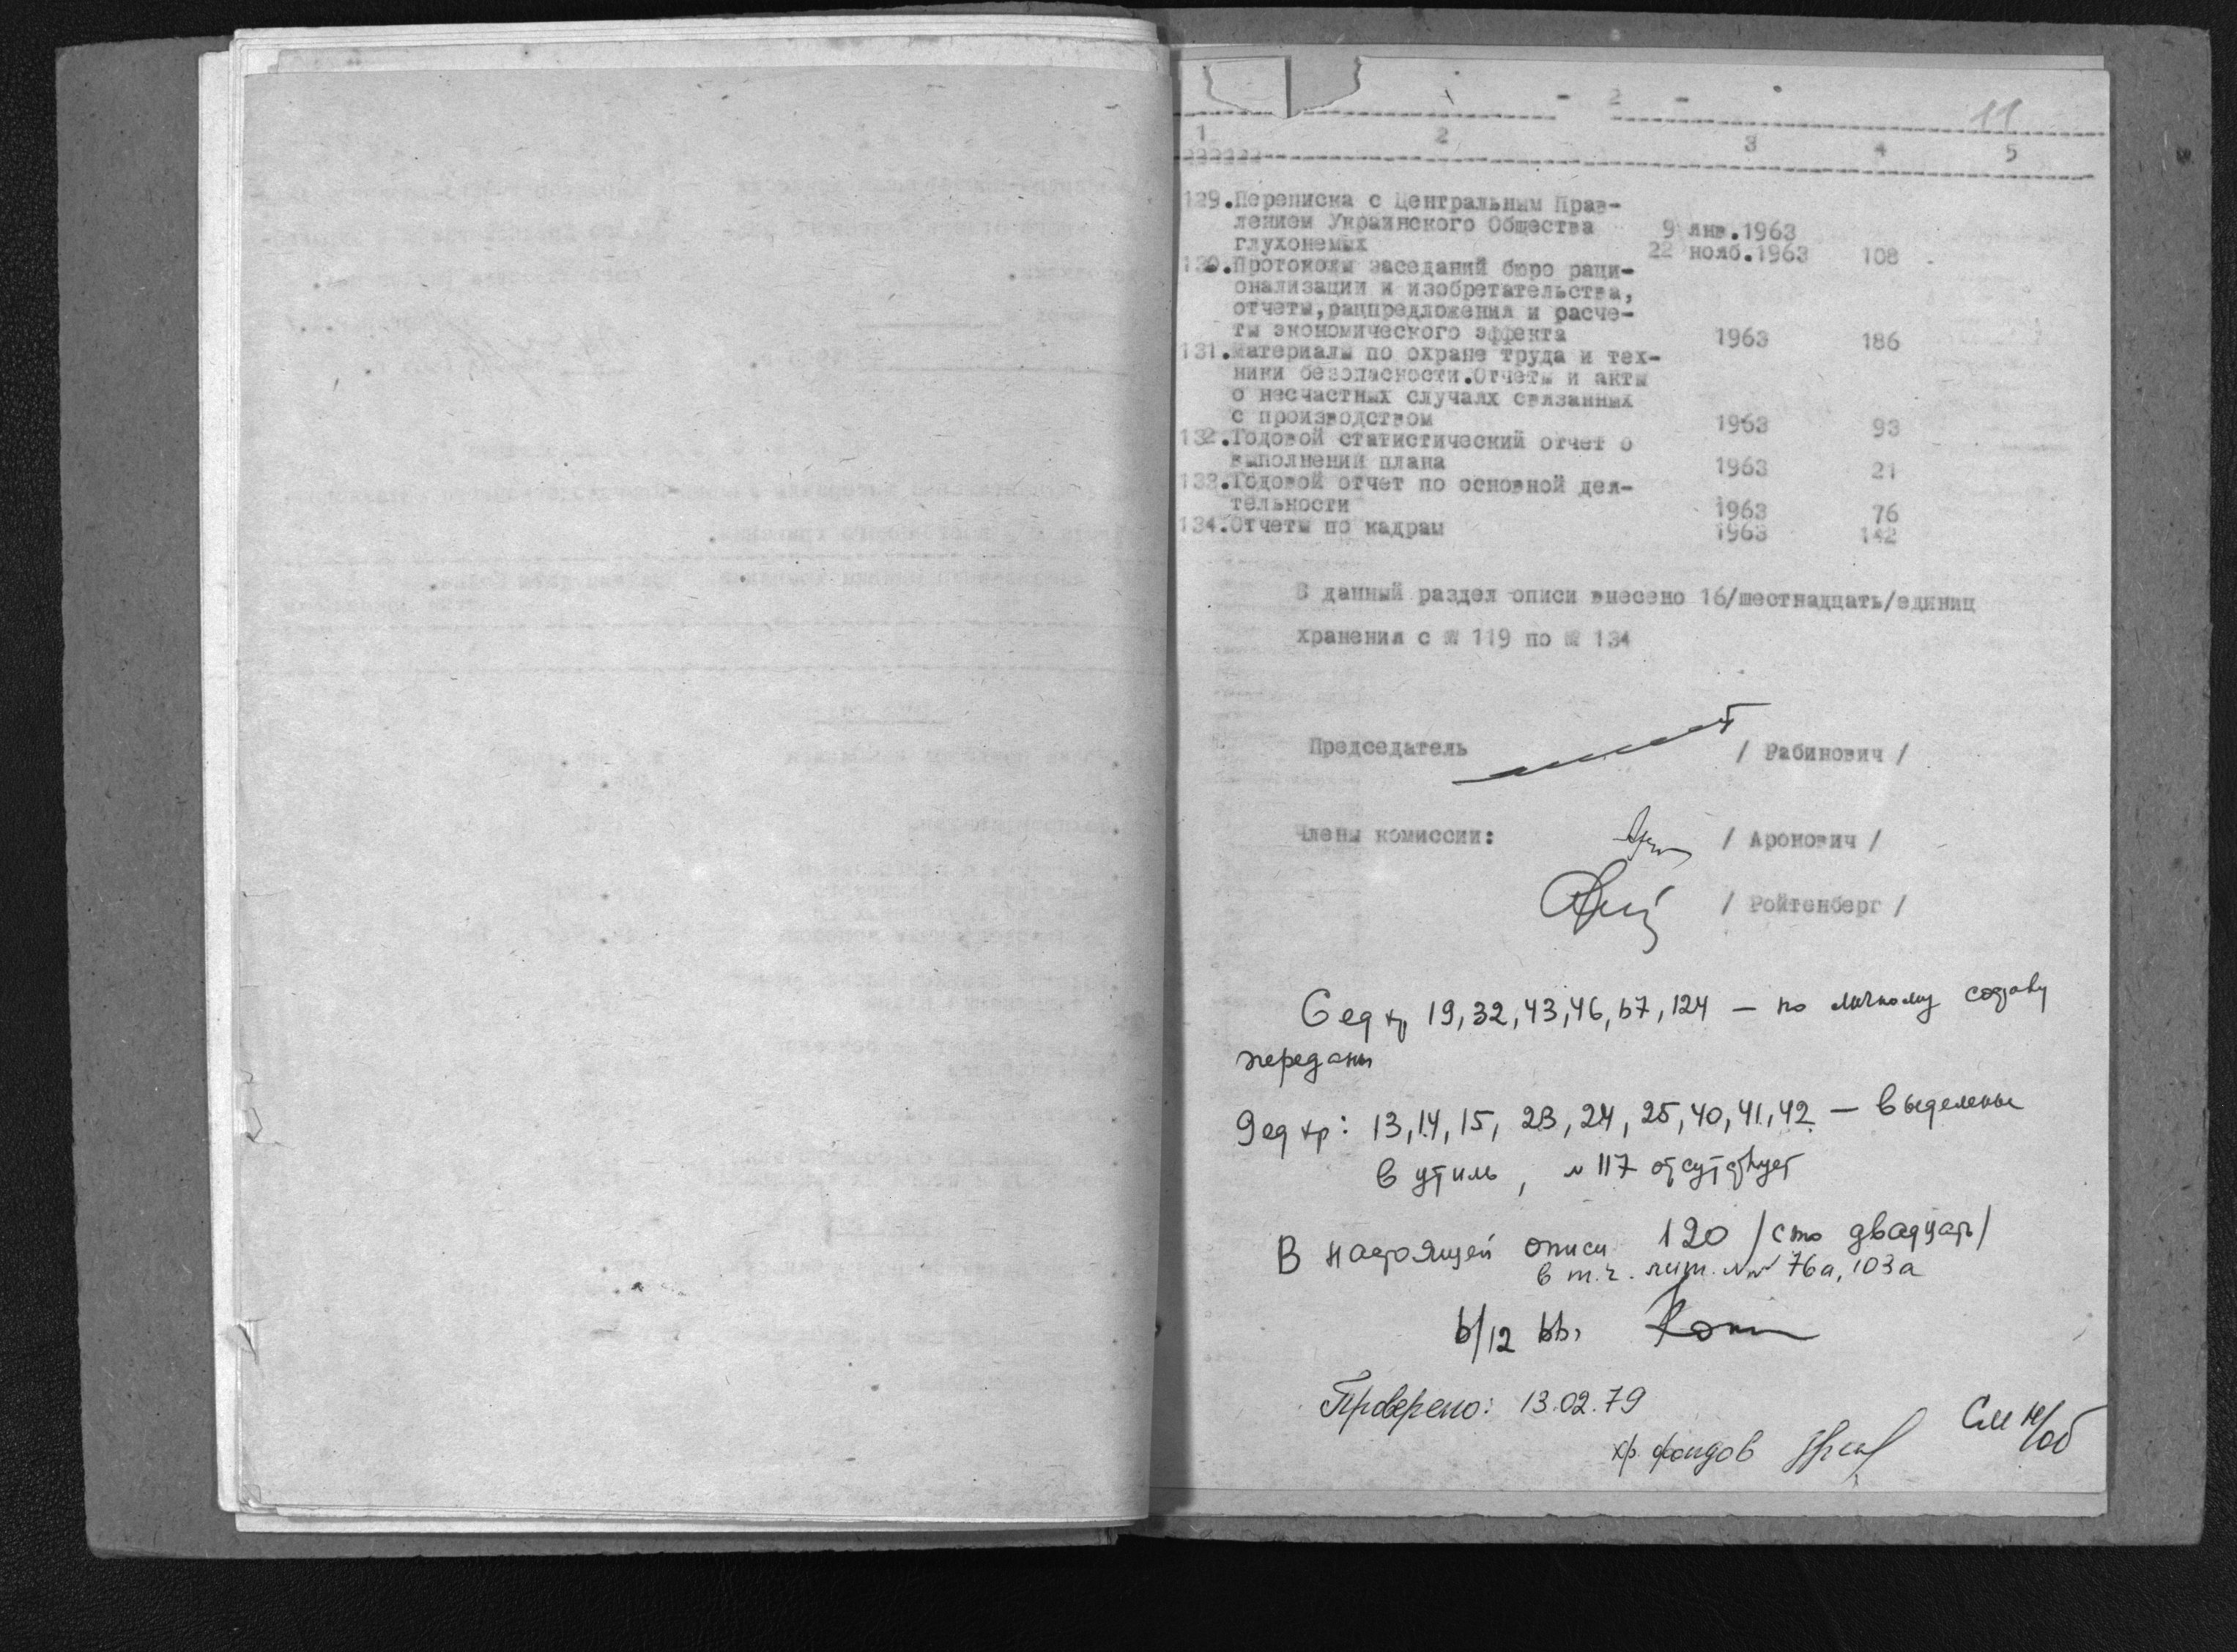 - 2 -
11
1 2 3 4 5
129.Переписка с Центральным Прав-
лением Украинского Общества 9 янв.1963
глухонемых 22 нояб.1963 108
130.Протоколы заседаний бюро раци-
онализации и изобретательства,
отчеты,рацпредложения и расче-
ты экономического эффекта 1963 186
131.Материалы по охране труда и тех-
ники безопасности.Отчеты и акты
о несчастных случаях связанных
с производством 1963 93
132.Годовой статистический отчет о
выполнении плана 1963 21
133.Годовой отчет по основной дея-
тельности 1963 76
134.Отчеты по кадрам 1963 142
В данный раздел описи внесено 16/шестнадцать/единиц
хранения с № 119 по № 134
Председатель / Рабинович /
Члены комиссии: / Аронович /
/ Ройтенберг /
6 ед хр 19, 32, 43, 46, 67, 124 — по личному составу
переданы
9 ед хр: 13, 14, 15, 23, 24, 25, 40, 41, 42 — выделены
в утиль, № 117 отсутствует
В настоящей описи 120 /сто двадцать/
в т.ч. лит. №№ 76а, 103а
6/12 66г
Проверено: 13.02.79
хр. фондов
См н/об